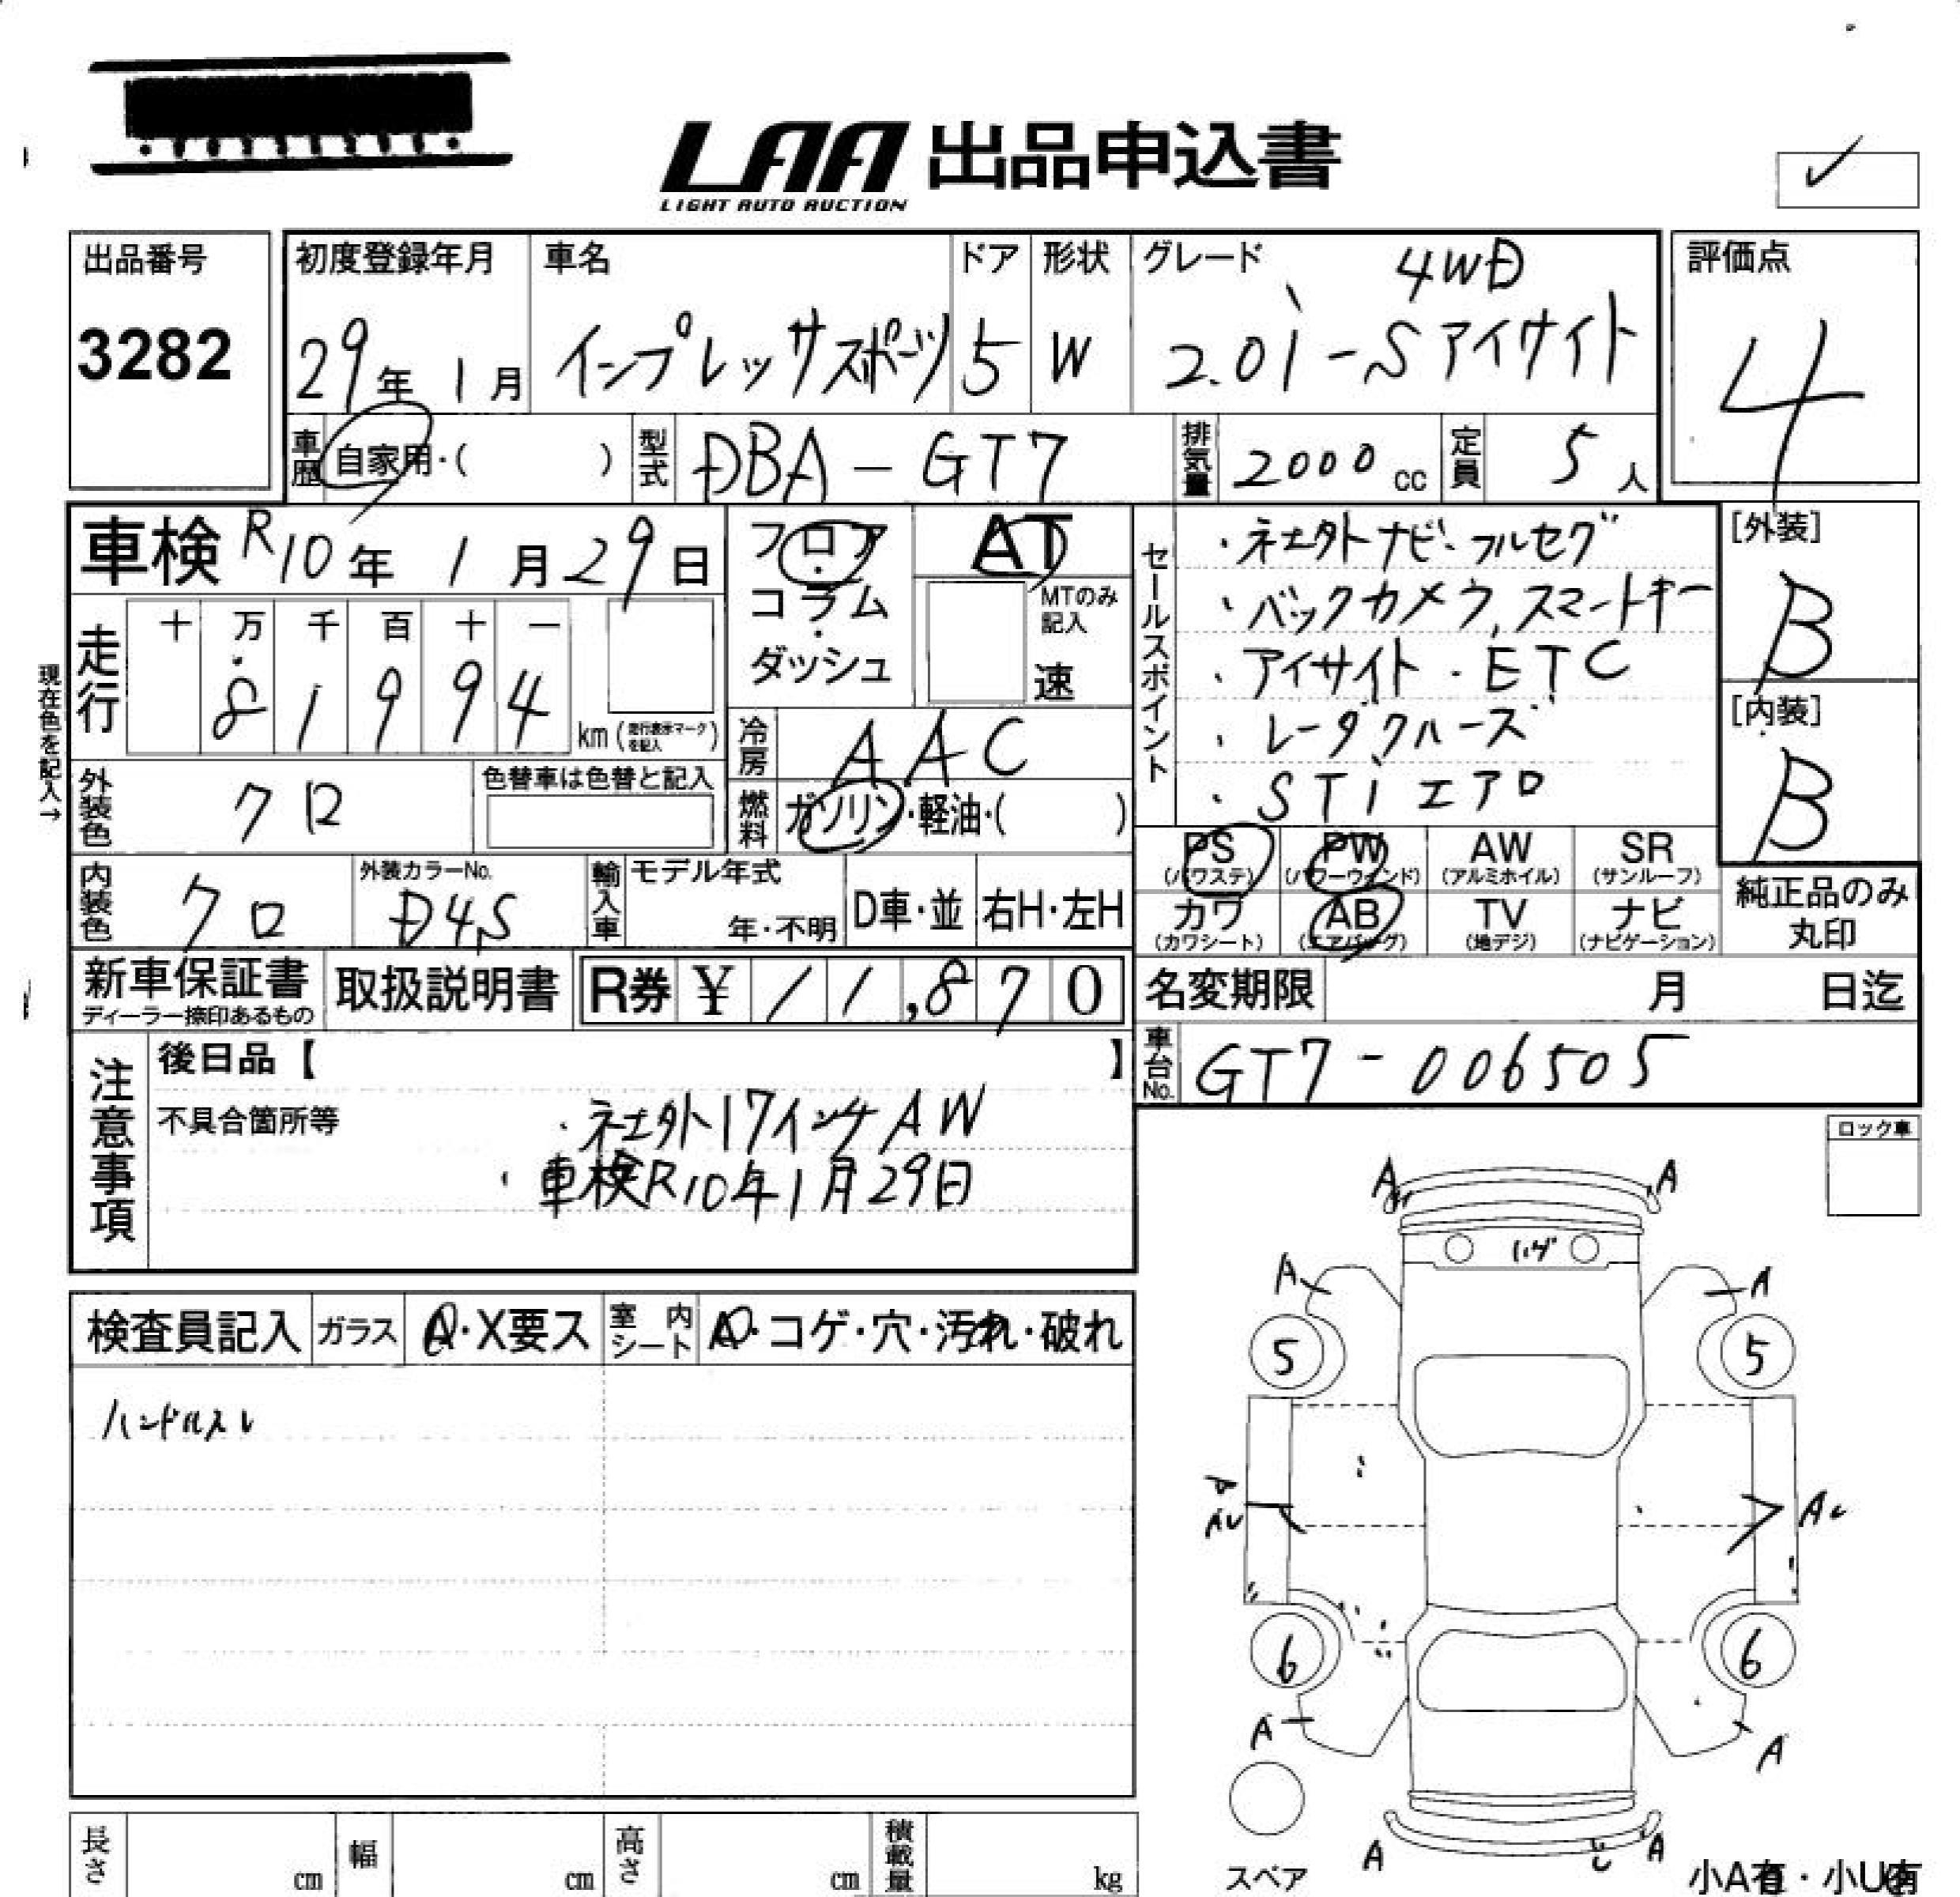 LAA 出品申込書
LIGHT AUTO AUCTION
出品番号
3282
初度登録年月
29年 1月
車名
インプレッサスポーツ
ドア
5
形状
W
グレード
4WD
2.0i-Sアイサイト
評価点
4
車歴
自家用・( )
型式
DBA-GT7
排気量
2000 cc
定員
5人
車検 R10年 1月29日
走行
十 万 千 百 十 一
8 1 9 9 4
km(走行表示マークを記入)
現在色を記入→
外装色
クロ
色替車は色替と記入
内装色
クロ
外装カラーNo.
D4S
輸入車
モデル年式
年・不明
D車・並
右H・左H
フロア
・
コラム
・
ダッシュ
AT
MTのみ記入
速
冷房
AAC
燃料
ガソリン・軽油・( )
セールスポイント
・社外ナビ・フルセグ
・バックカメラ,スマートキー
・アイサイト・ETC
・レーダクルーズ
・STiエアロ
[外装]
B
[内装]
B
PS
(パワステ)
PW
(パワーウィンド)
AW
(アルミホイル)
SR
(サンルーフ)
カワ
(カワシート)
AB
(エアバッグ)
TV
(地デジ)
ナビ
(ナビゲーション)
純正品のみ
丸印
新車保証書
ディーラー捺印あるもの
取扱説明書
R券 ¥ 11,870
名変期限
月 日迄
車台No.
GT7-006505
注意事項
後日品【 】
不具合箇所等
・社外17インチAW
・車検R10年1月29日
ロック車
検査員記入
ガラス
A・X要ス
室内シート
A・コゲ・穴・汚れ・破れ
ハンドルスレ
A A
ハゲ
A A
5 5
AU
6 6
A A
A A
スペア
小A有・小U有
長さ
cm
幅
cm
高さ
cm
積載量
kg